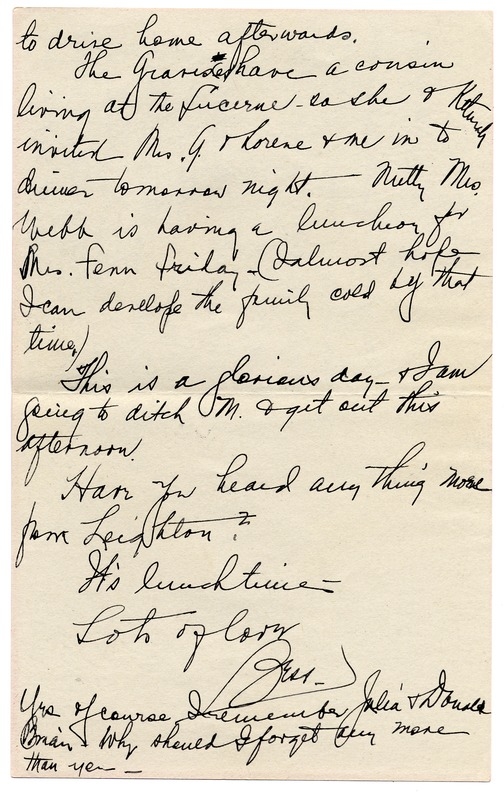 to drive home afterwards.
The Gravesdes have a cousin
living at the Lucerne - so she &
invited Mrs. G. & Lorene & me in to
dinner tomorrow night. — Nutty Mrs.
Webb is having a luncheon for
Mrs. Fenn Friday - (I almost hope
I can develope the family cold by that
time.)
This is a glorious day - & I am
going to ditch M. & get out this
afternoon.
Have you heard any thing more
from Leighton?
It's lunchtime -
Lots of love
Bess -
Yes of course I remember Julia & Donald
Brian - Why should I forget any more
than you -